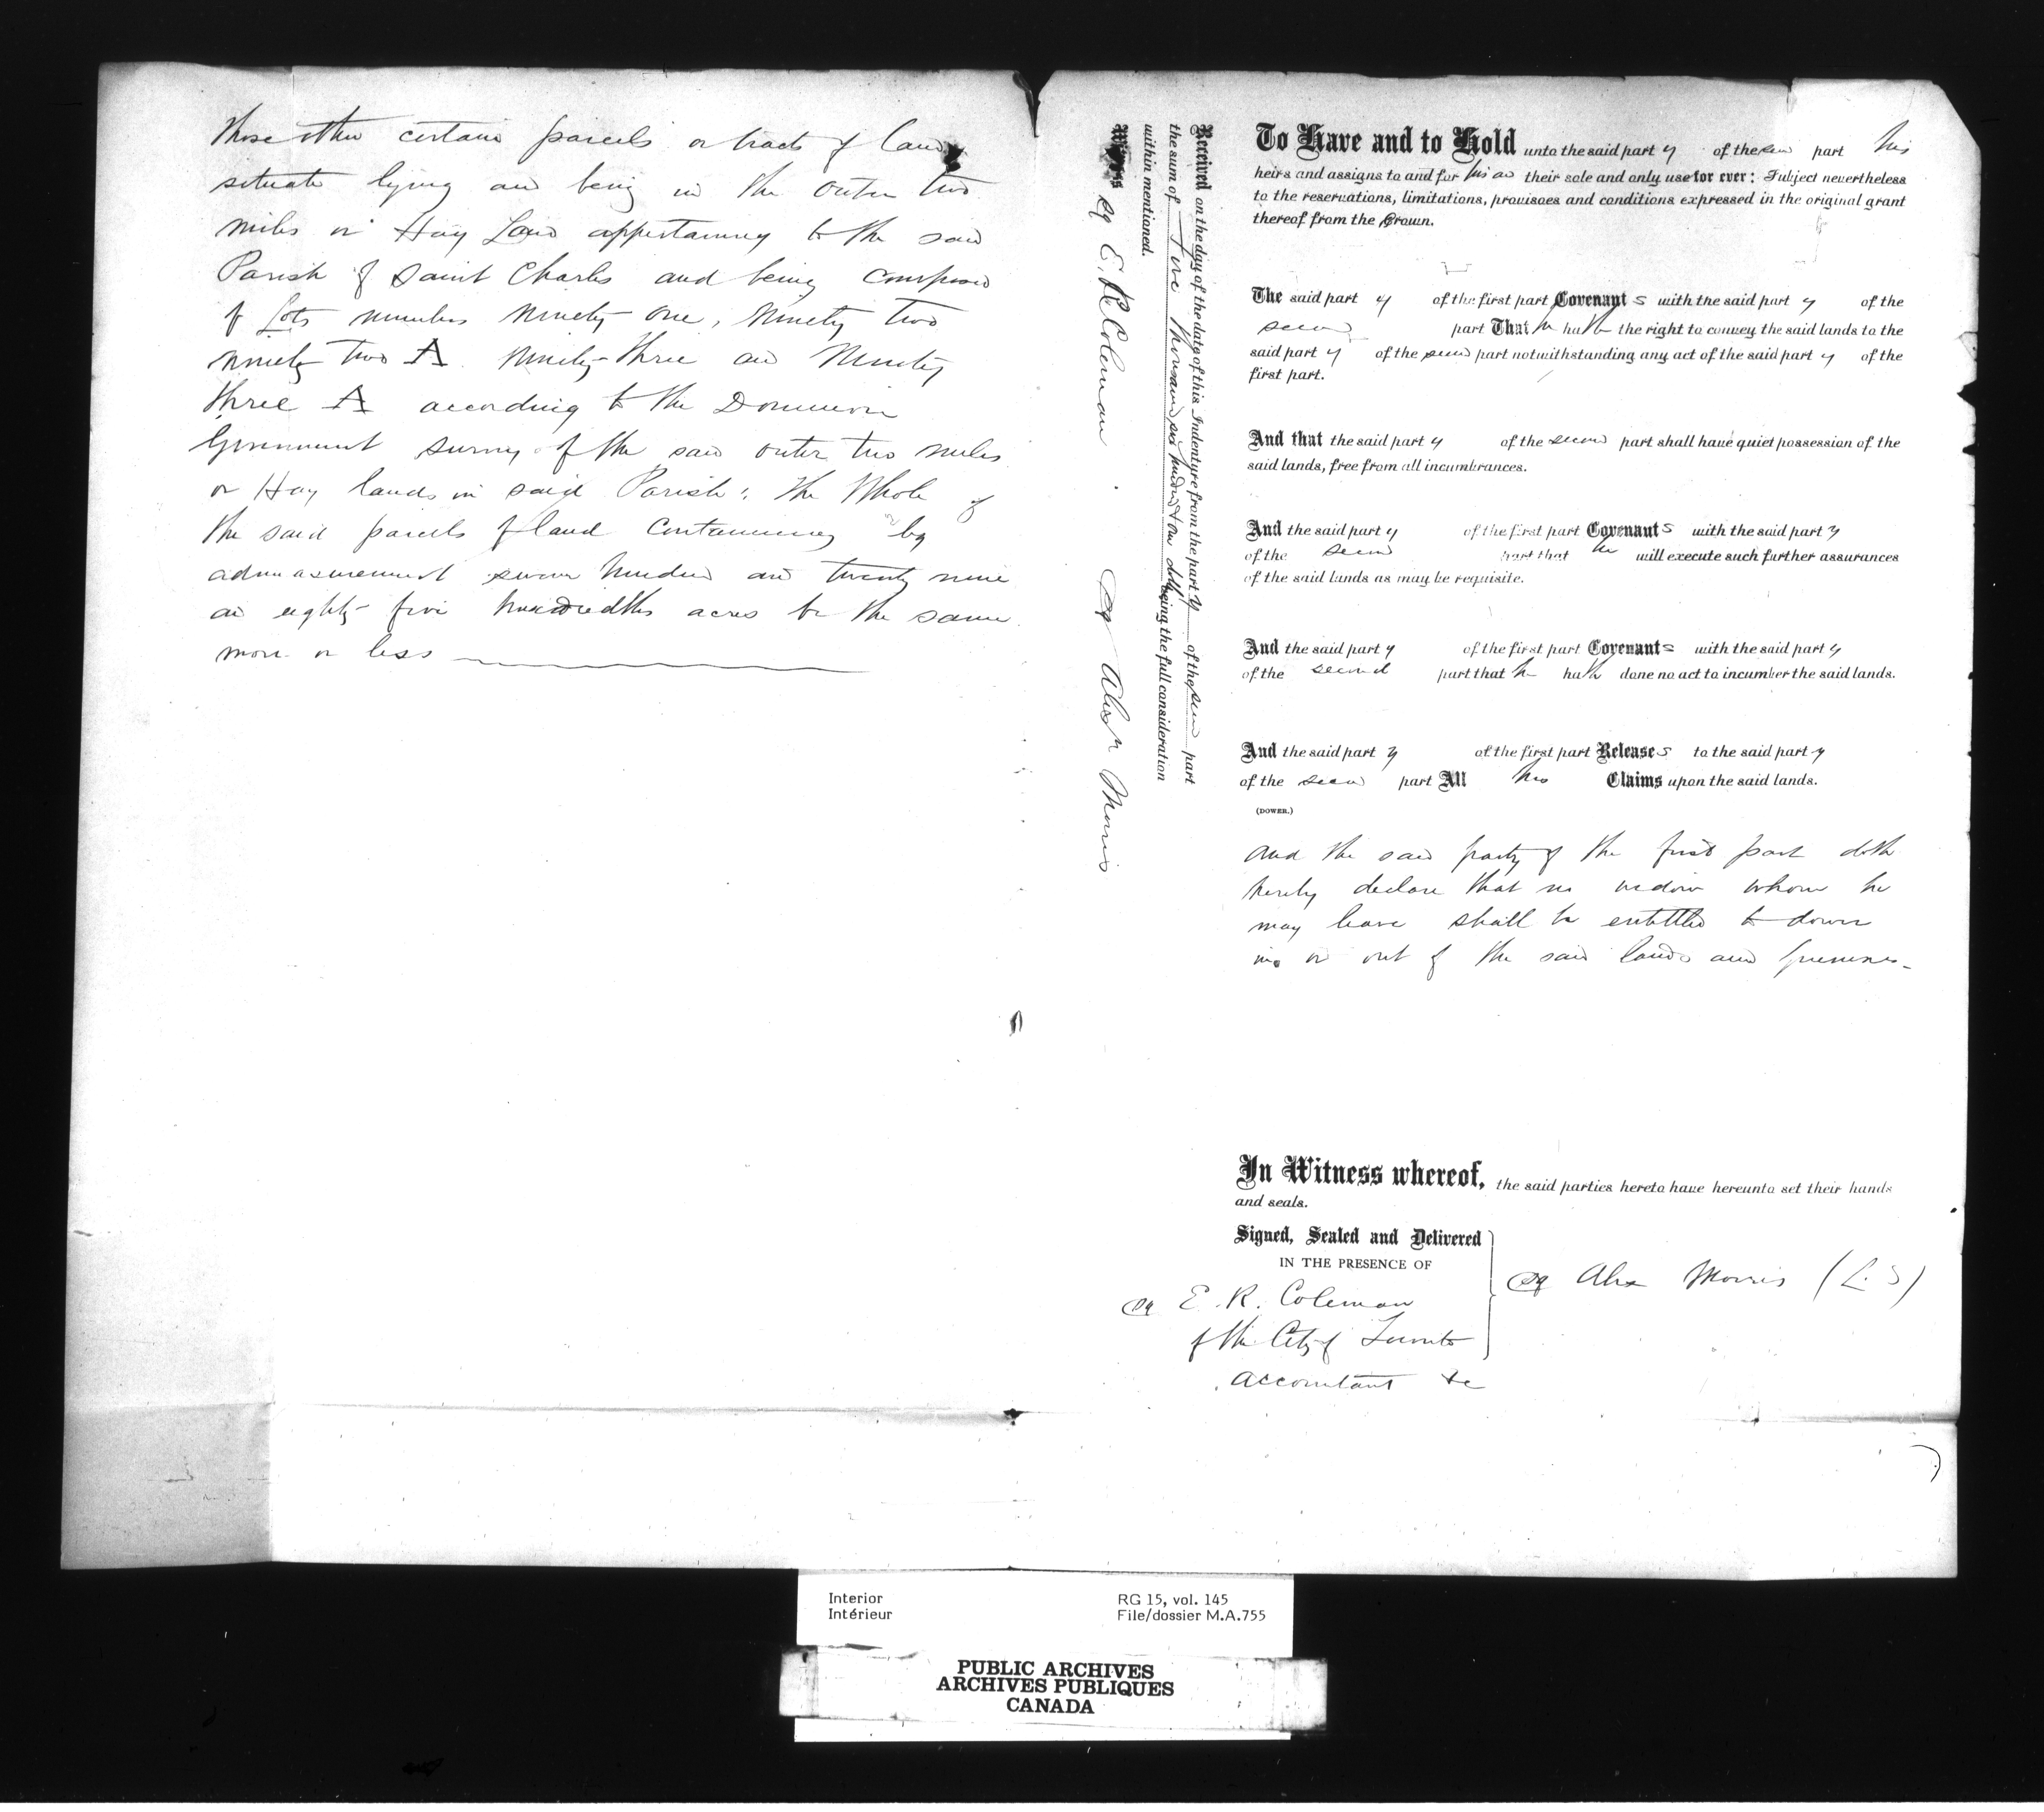 those other certain parcels or tracts of land
situate lying and being in the outer two
miles or Hay Land appertaining to the said
Parish of Saint Charles and being composed
of Lots numbers Ninety one, Ninety two
ninety two A Ninety-three and Ninety
three A according to the Dominion
Government survey of the said outer two miles
or Hay lands in said Parish; the Whole of
the said parcels of land containing by
admeasurement seven hundred and twenty nine
and eighty five hundredths acres be the same
more or less
Received on the day of the date of this Indenture from the party of the second part
the sum of Five thousand six hundred & one dolls being the full consideration
within mentioned.
Witness
sg E. R. Coleman sg Alexr Morris
To Have and to Hold unto the said party of the second part his
heirs and assigns to and for his and their sole and only use for ever: Subject nevertheless
to the reservations, limitations, provisoes and conditions expressed in the original grant
thereof from the Crown.
The said party of the first part Covenants with the said party of the
second part That he hath the right to convey the said lands to the
said party of the second part notwithstanding any act of the said party of the
first part.
And that the said party of the second part shall have quiet possession of the
said lands, free from all incumbrances.
And the said party of the first part Covenants with the said party
of the second part that he will execute such further assurances
of the said lands as may be requisite.
And the said party of the first part Covenants with the said party
of the second part that he hath done no act to incumber the said lands.
And the said party of the first part Releases to the said party
of the second part All his Claims upon the said lands.
(DOWER.)
And the said party of the first part doth
hereby declare that no widow whom he
may leave shall be entitled to dower
in or out of the said lands and premises-
In Witness whereof, the said parties hereto have hereunto set their hands
and seals.
Signed, Sealed and Delivered
IN THE PRESENCE OF
sg E. R. Coleman
of the City of Toronto
Accountant &c
sg Alex Morris (L.S)
Interior
Intérieur
RG 15, vol. 145
File/dossier M.A.755
PUBLIC ARCHIVES
ARCHIVES PUBLIQUES
CANADA